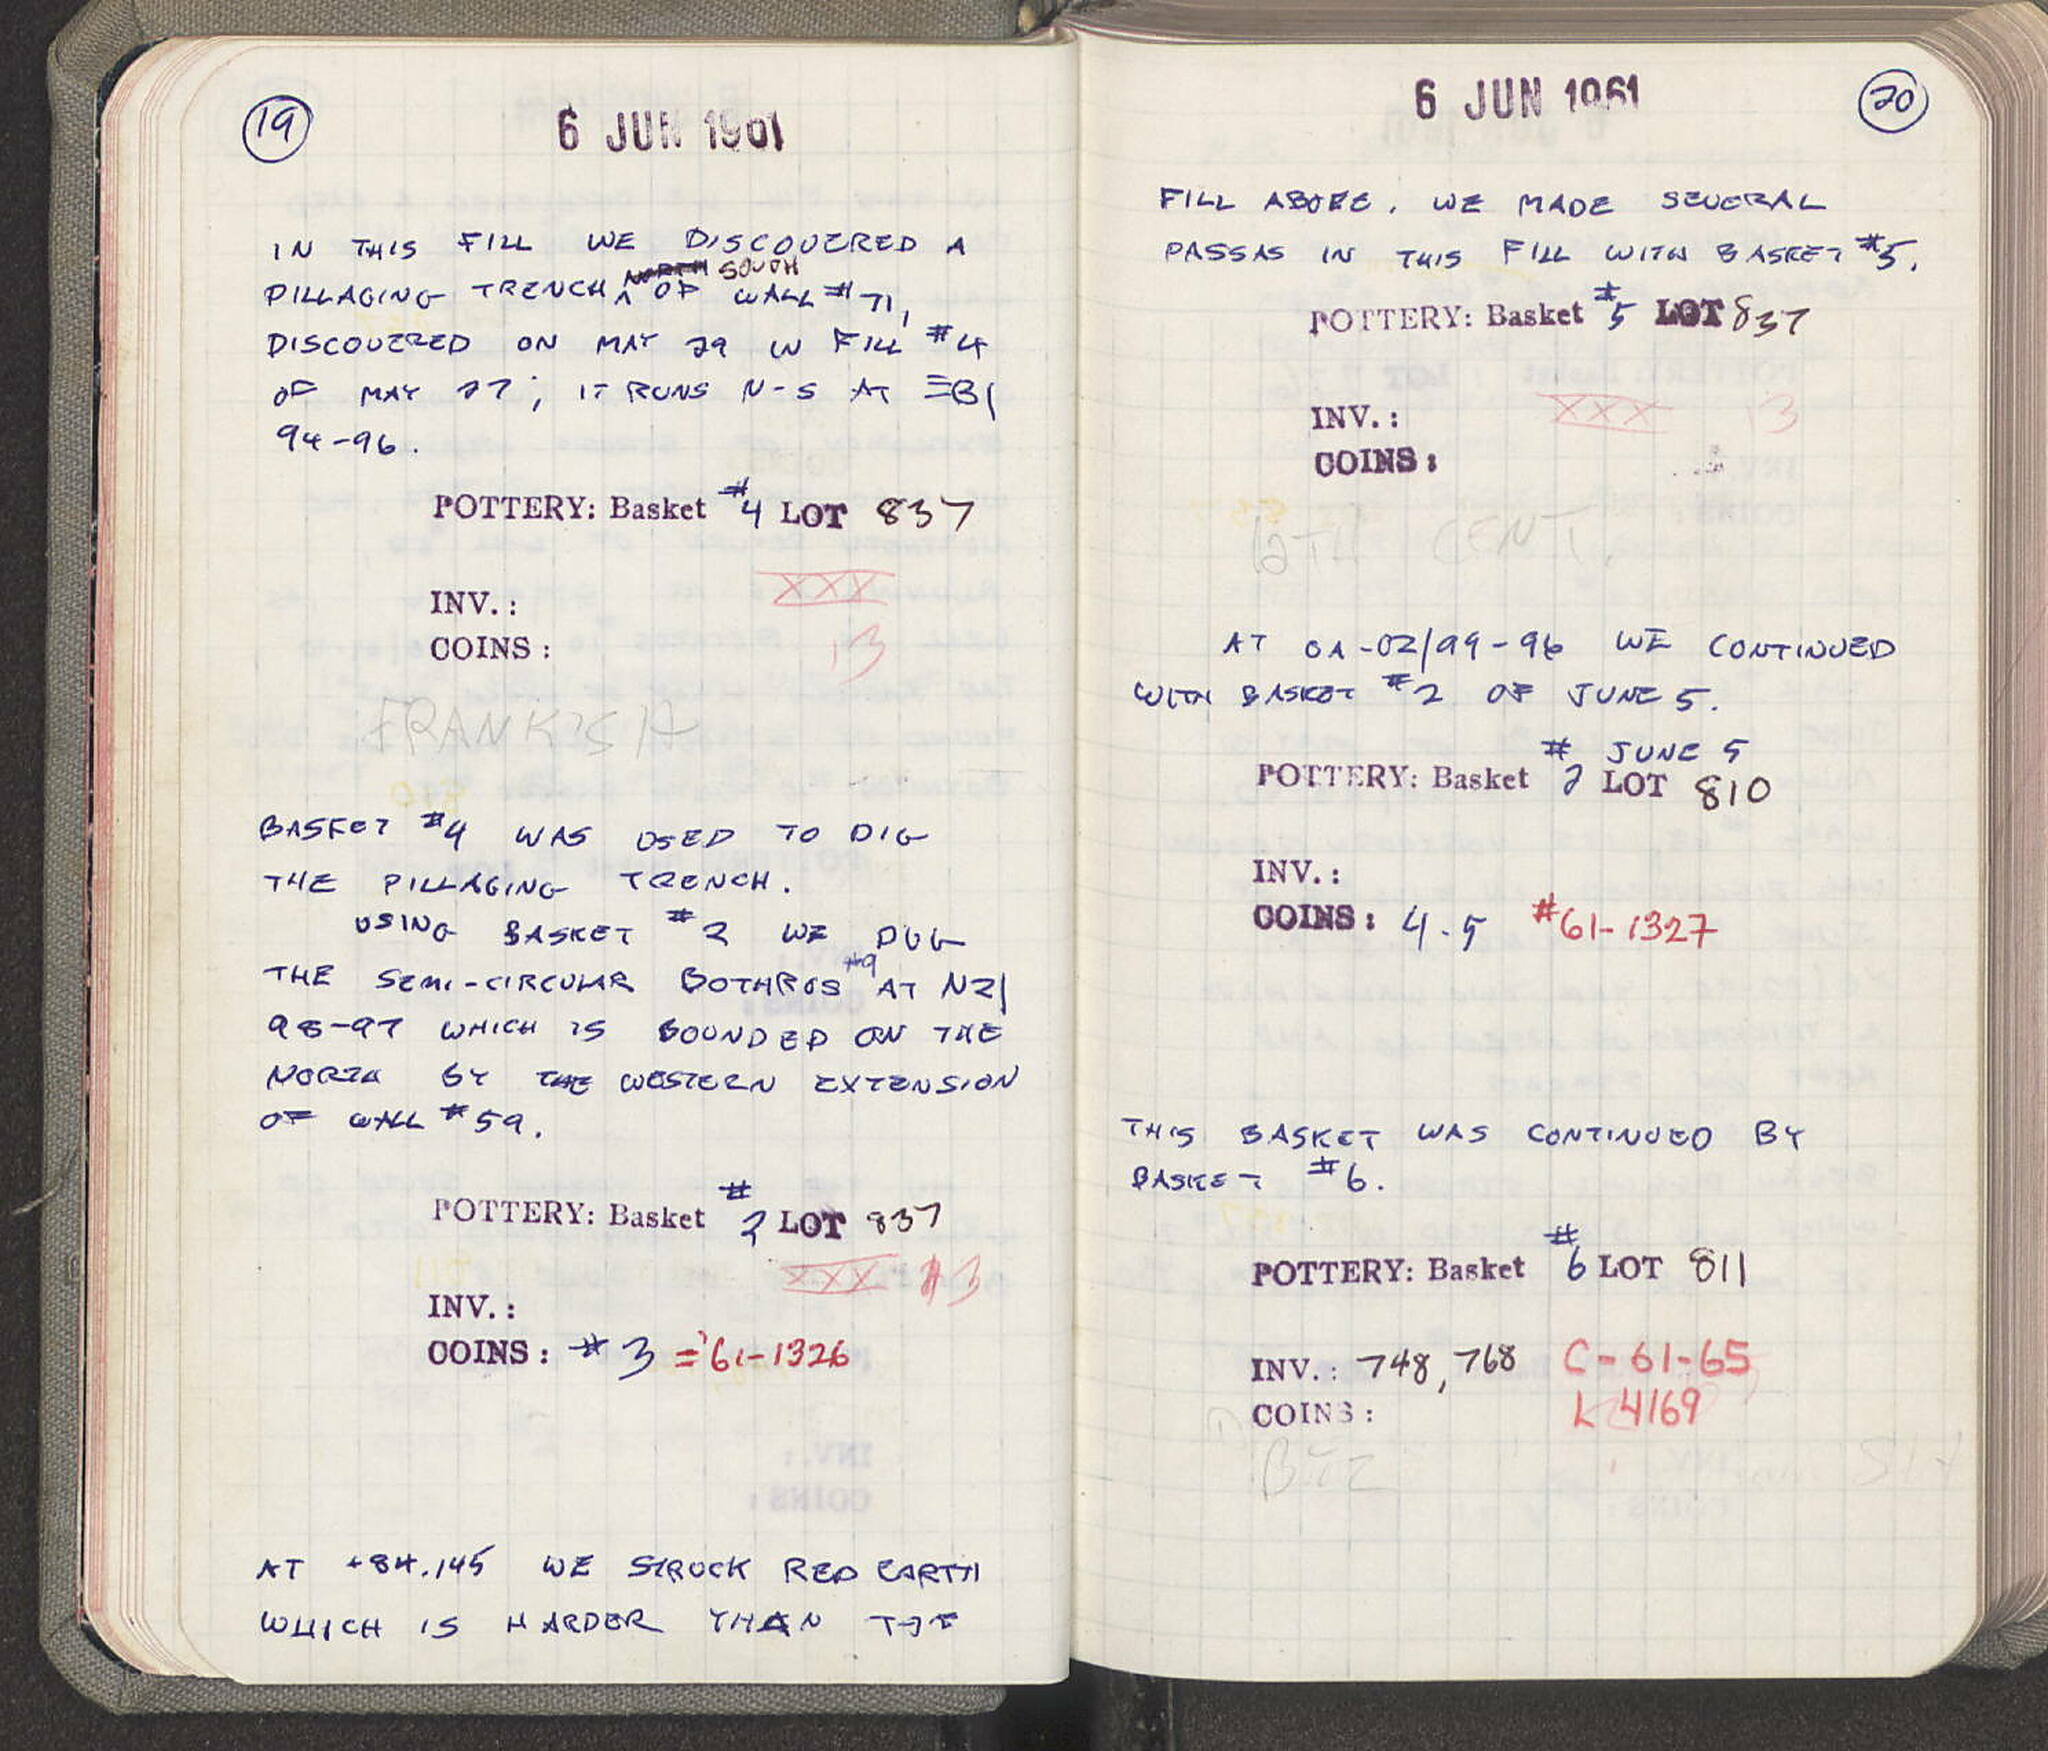 19
6 JUN 1961
IN THIS FILL WE DISCOVERED A
PILLAGING TRENCH ^ NORTH SOUTH OF WALL #71,
DISCOVERED ON MAY 29 IN FILL #4
OF MAY 27; IT RUNS N-S AT ΞB/
94-96.
POTTERY: Basket #4 LOT 837
XXX
INV.:
COINS:
13
FRANKISH
BASKET #4 WAS USED TO DIG
THE PILLAGING TRENCH.
USING BASKET #2 WE DUG
THE SEMI-CIRCULAR BOTHROS #9 AT NZ/
98-97 WHICH IS BOUNDED ON THE
NORTH BY THE WESTERN EXTENSION
OF WALL #59.
POTTERY: Basket #2 LOT 837
XXX 13
INV.:
COINS: #3 = '61-1326
AT +84.145 WE STRUCK RED EARTH
WHICH IS HARDER THAN THE
20
6 JUN 1961
FILL ABOVE. WE MADE SEVERAL
PASSAS IN THIS FILL WITH BASKET #5.
POTTERY: Basket #5 LOT 837
INV.:
XXX 13
COINS:
12TH CENT.
AT OA-OZ/99-96 WE CONTINUED
WITH BASKET #2 OF JUNE 5.
# JUNE 5
POTTERY: Basket 2 LOT 810
INV.:
COINS: 4.5 #61-1327
THIS BASKET WAS CONTINUED BY
BASKET #6.
POTTERY: Basket #6 LOT 811
INV.: 748, 768 C-61-65
COINS: L 4169
BYZ